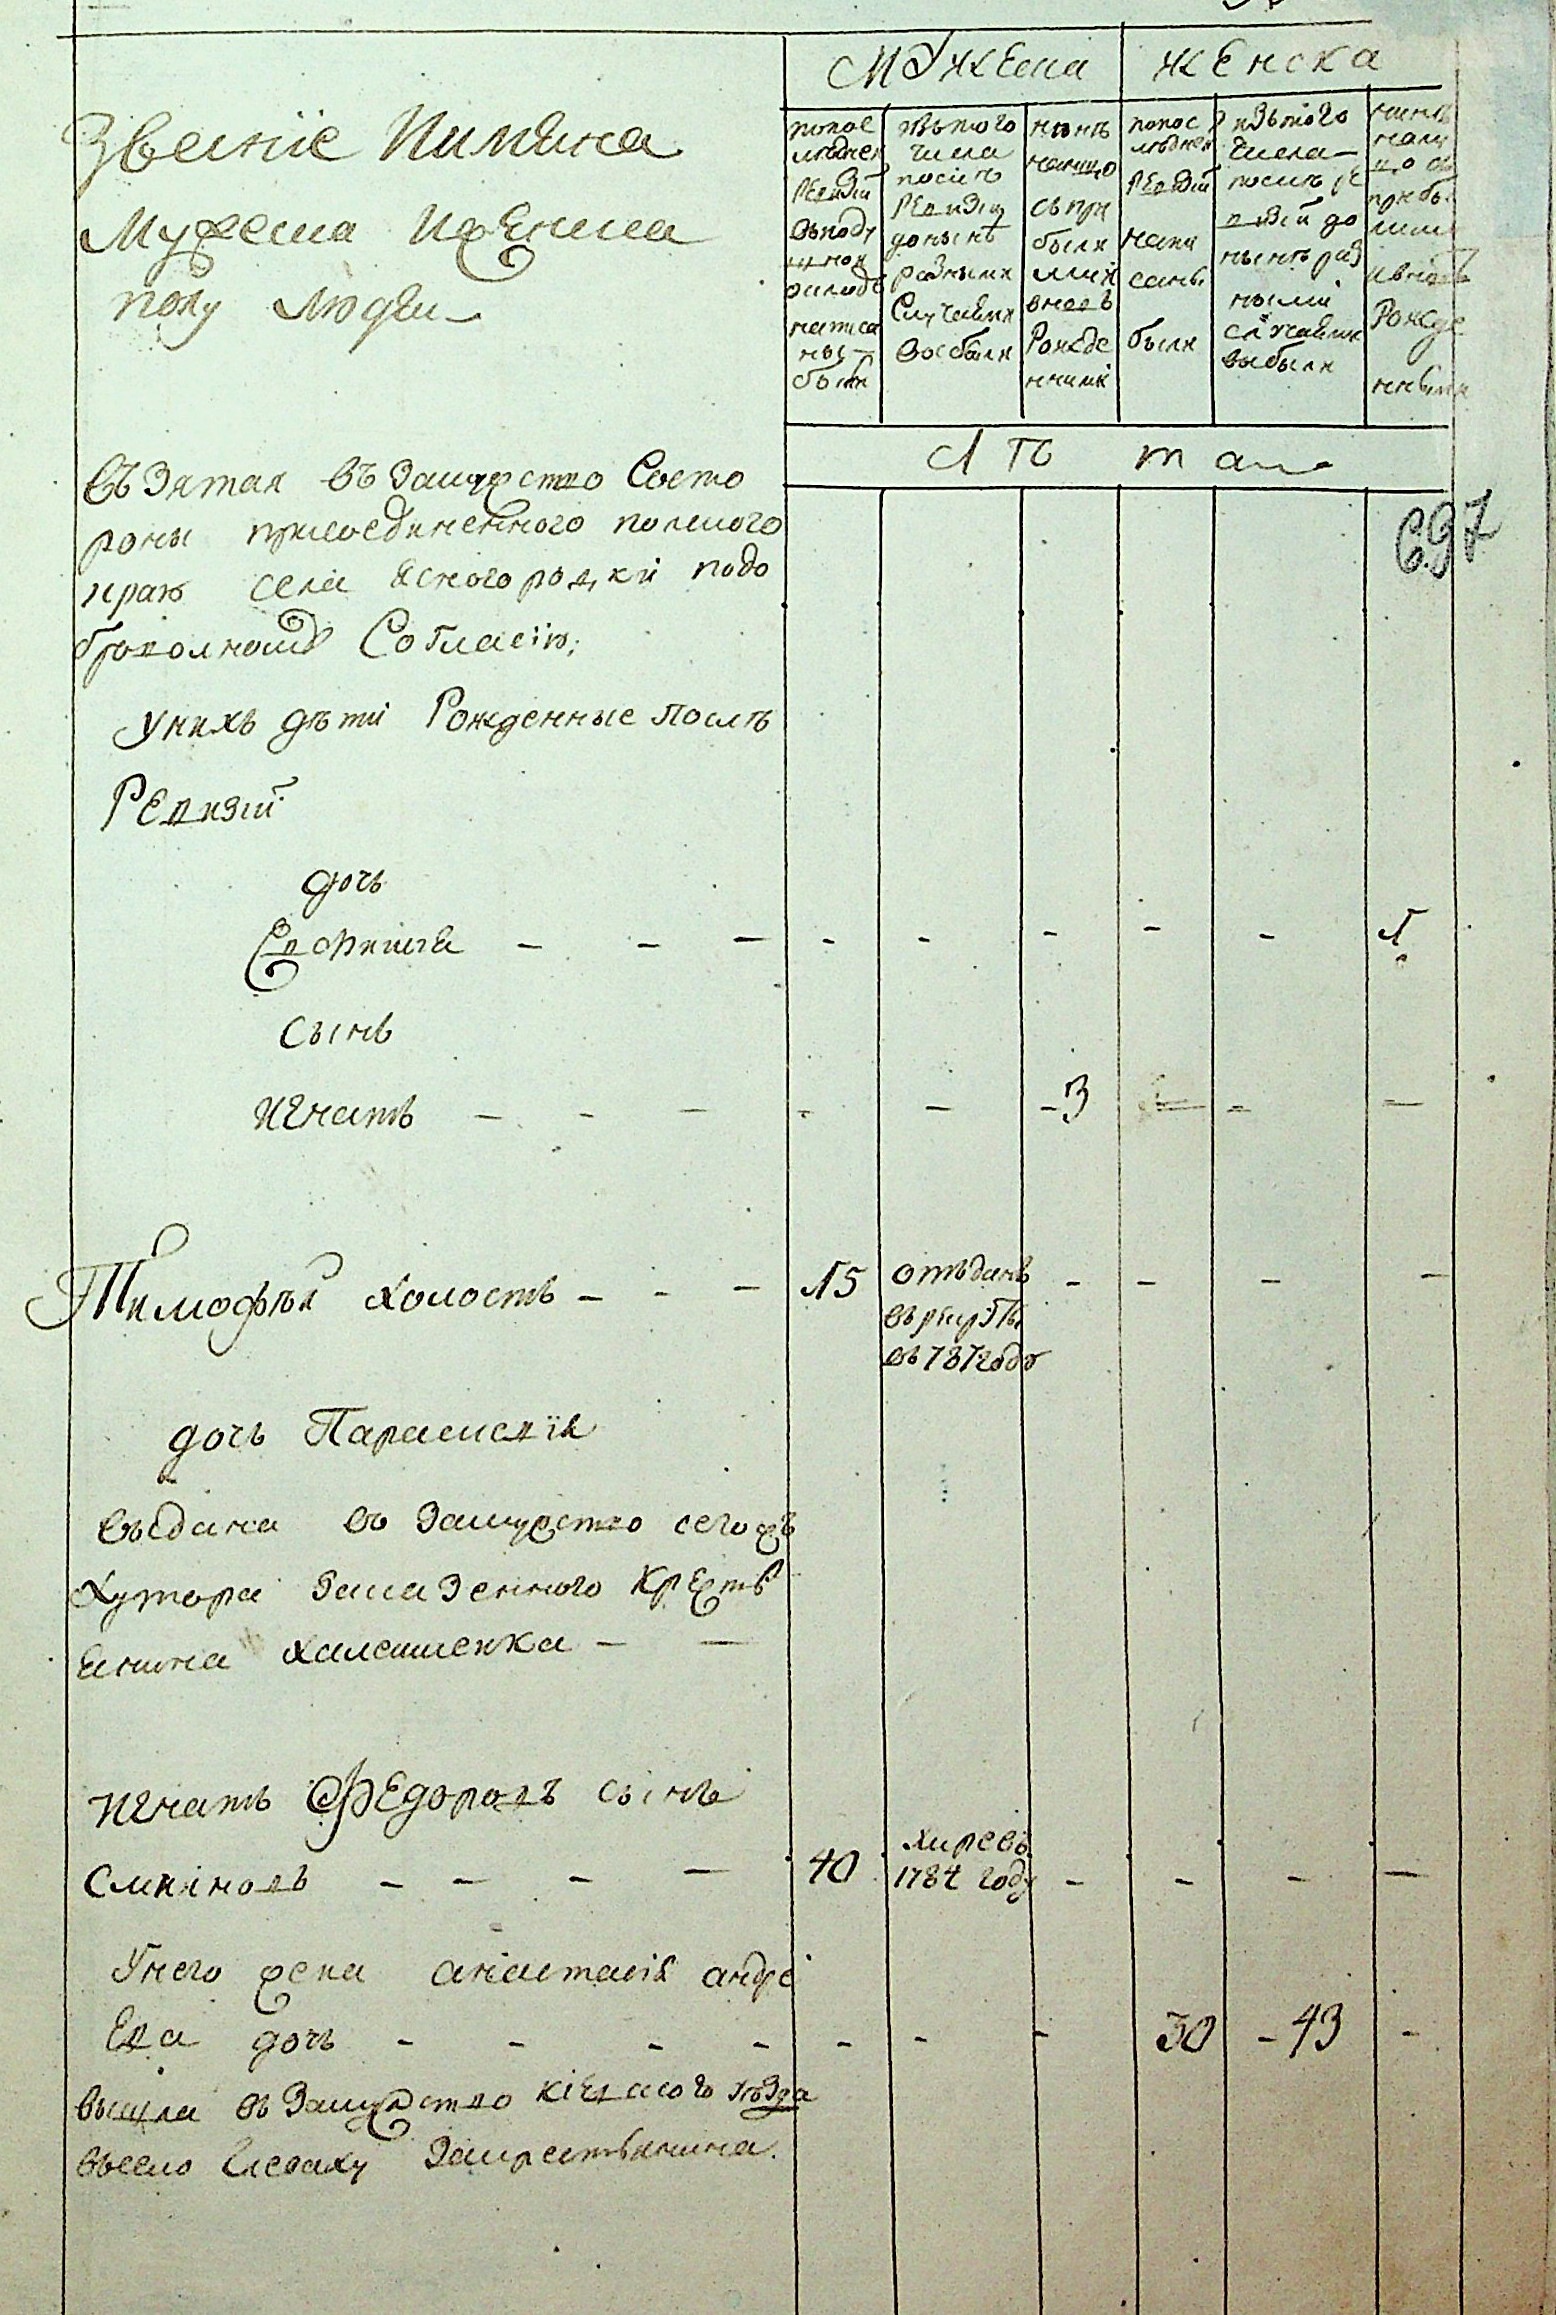 Званїе Имяна
Мужеска Иженска
полу людям
мужеска
женска
попос
лѣдней
Ревизїй
вподу
шной
окладъ
написа
ны
были
изътого
числа
послѣ
Ревизїи
донынѣ
разными
случаями
выбыли
нынѣ
налицо
съпри
были
ми и
вновь
Рожде
нними
попос
лѣдней
Ревизїй
напи
саны
были
изътого
числа
послѣ ре
визїй до
нынѣ раз
ными
случаями
выбыли
нынѣ
нали
цо съ
прибы
лими
ивновь
Рожде
нными
лѣта
697
въ Зятая въ замужство Состо
роны присоединенного полского
краю села Ясногородки подо
броволному Согласїю;
Унихъ дѣти Рожденные послѣ
Ревизїй
дочь
Евфимия - - - - - - - - 1
сынъ
игнатъ - - - - - - 3 - - -
Тимофѣй холостъ - - - 15 отъданъ - - - -
врекруты
въ 787 году
дочь Параскевїя
въідана во замужство сегожъ
хутора заказенного Крестъ
янина Халешенка - -
игнатъ Федоровъ сынъ
Смѣяновъ - - - - 40 умре въ - - - -
1784 году
Унего жена анастасїя андре
Ева дочь - - - - - - - 30 - 43 -
вышла въ замужство кїевского уѣзда
въсело закрестьянина